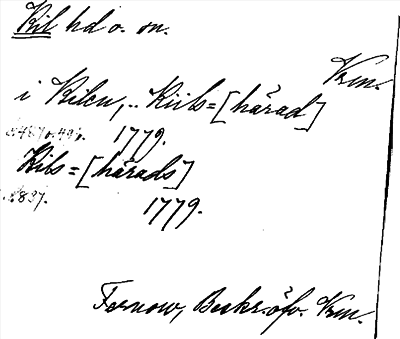 Kil hd o. sn.
Vrm.
i Kilen, .. Kiils=[härad]
1779.
Kils=[härads]
s. 837.
1779.
Fernow, Beskr. öfv. Vrm.